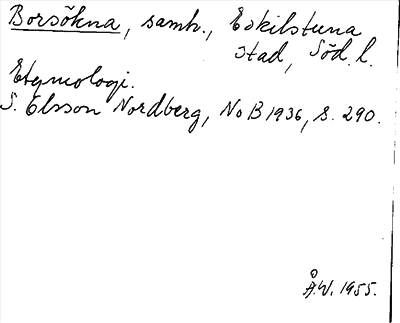 Borsökna, samh., Eskilstuna
stad, Söd. l.
Etymologi.
S. Elsson Nordberg, NoB 1936, s. 290.
Å.W. 1955.